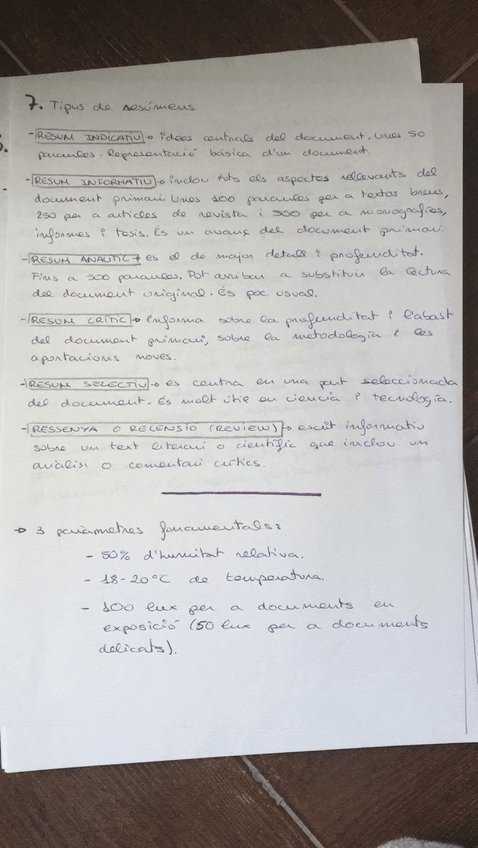 7. Tipus de resúmens
- RESUM INDICATIU → idees centrals del document. Unes 50
paraules. Representació bàsica d'un document.
- RESUM INFORMATIU → inclou tots els aspectes rellevants del
document primari. Unes 100 paraules per a textos breus,
250 per a articles de revista i 500 per a monografies,
informes i tesis. És un avanç del document primari.
- RESUM ANALÍTIC → és el de major detall i profunditat.
Fins a 500 paraules. Pot arribar a substituir la lectura
del document original. És poc usual.
- RESUM CRÍTIC → informa sobre la profunditat i l'abast
del document primari, sobre la metodologia i les
aportacions noves.
- RESUM SELECTIU → es centra en una part seleccionada
del document. És molt útil en ciencia i tecnologia.
- RESSENYA O RECENSIÓ (REVIEW) → escrit informatiu
sobre un text literari o científic que inclou un
anàlisi o comentari crítics.
→ 3 paràmetres fonamentals:
- 50% d'humitat relativa.
- 18-20°C de temperatura.
- 100 lux per a documents en
exposició (50 lux per a documents
delicats).